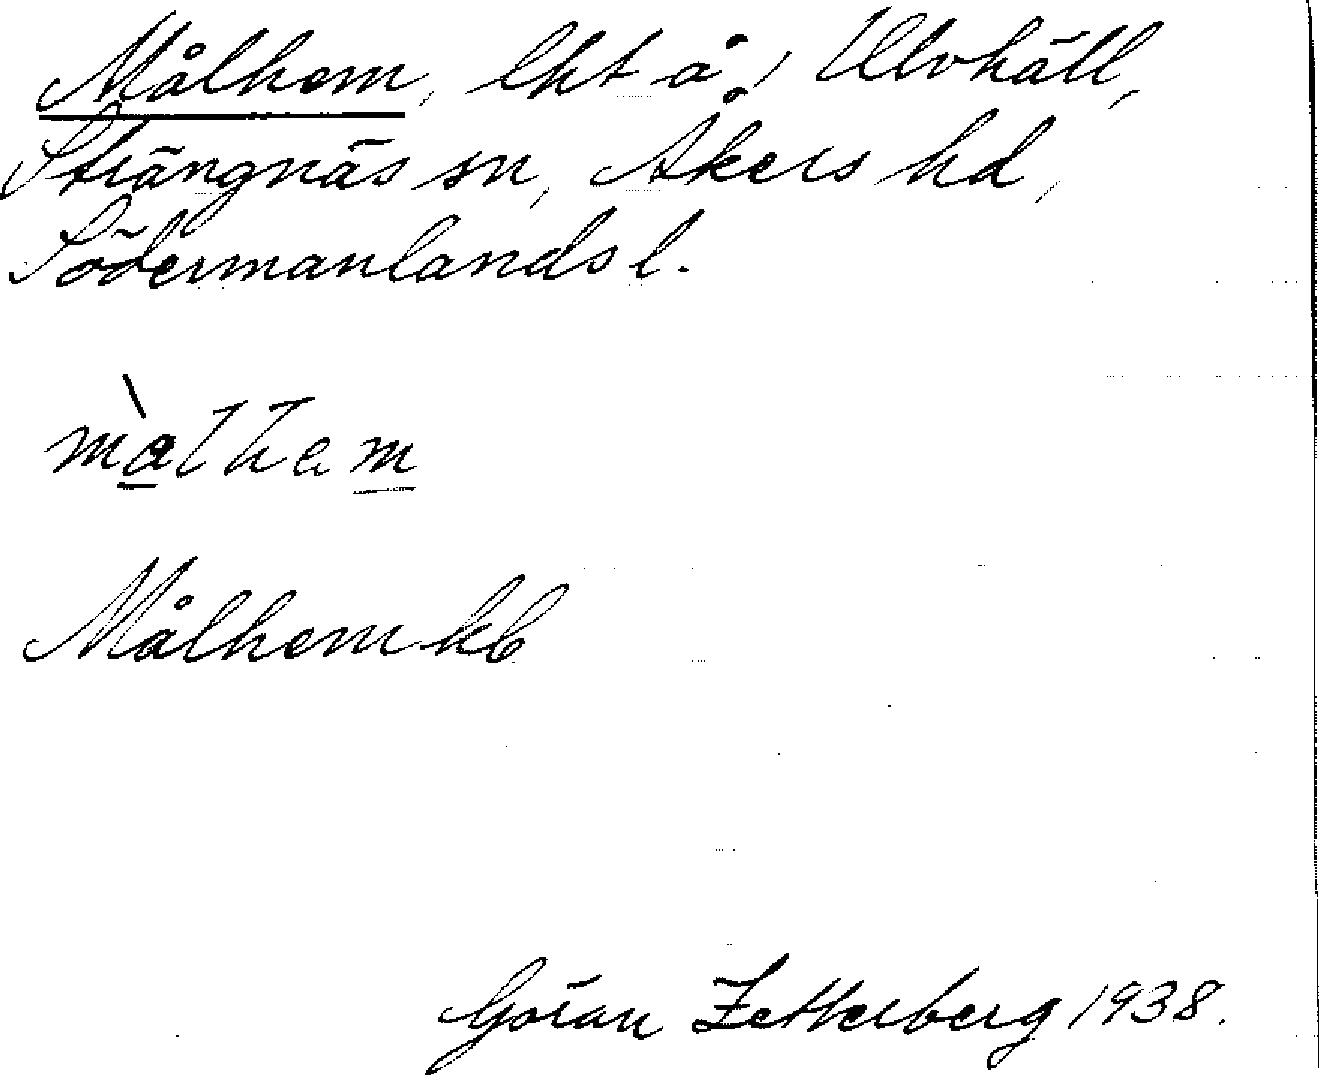 Målhem, lht å ! Ulvhäll,
Strängnäs sn, Åkers hd,
Södermanlands l.
Målhem kb
Göran Zetterberg 1938.